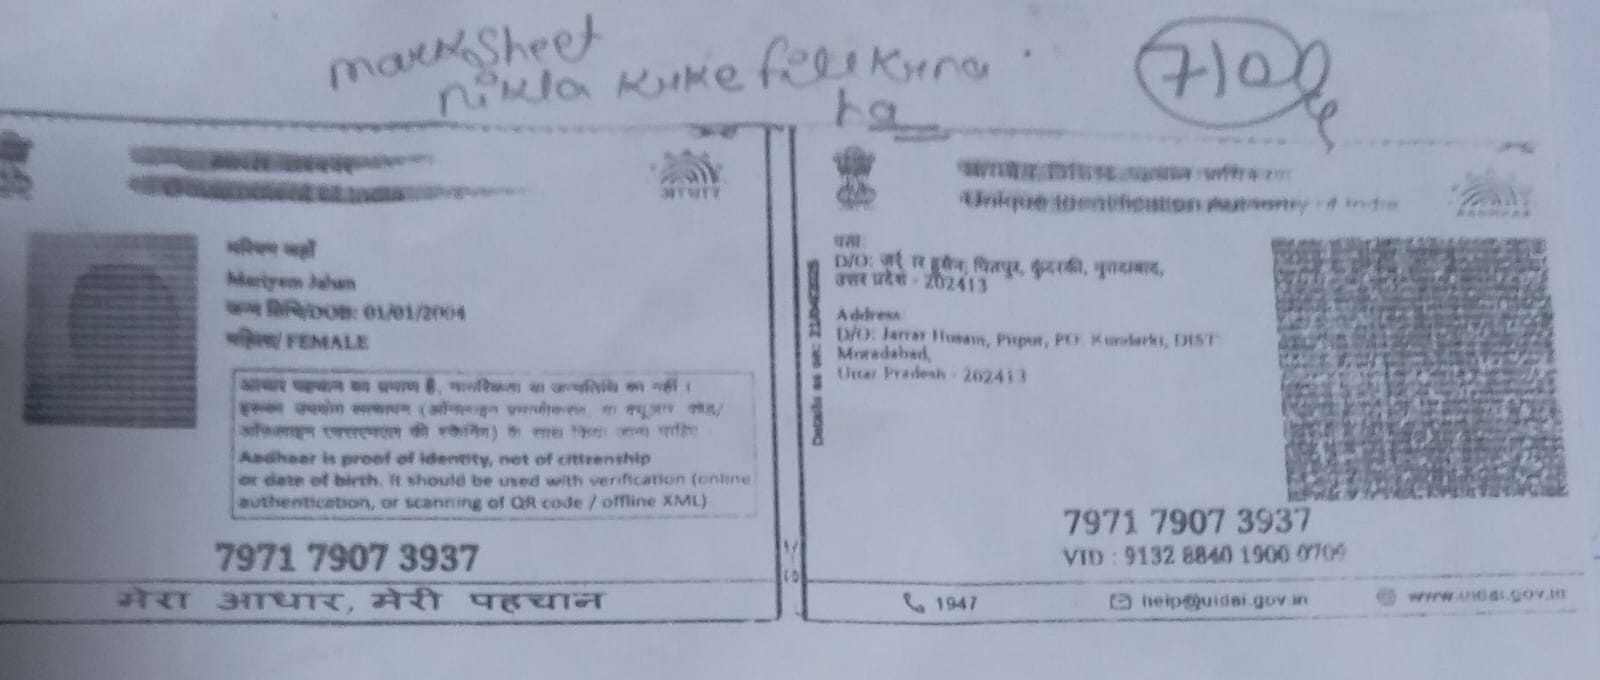 marksheet
nikla krke fill krna
ha
710
Government of India
आधार
मरियम जहाँ
Mariyam Jahan
जन्म तिथि/DOB: 01/01/2004
महिला/ FEMALE
आधार पहचान का प्रमाण है, नागरिकता या जन्मतिथि का नहीं ।
इसका उपयोग सत्यापन (ऑनलाइन प्रमाणीकरण, या क्यूआर कोड/
ऑफलाइन एक्सएमएल की स्कैनिंग) के साथ किया जाना चाहिए
Aadhaar is proof of identity, not of citizenship
or date of birth. It should be used with verification (online
authentication, or scanning of QR code / offline XML)
7971 7907 3937
मेरा आधार, मेरी पहचान
भारतीय विशिष्ट पहचान प्राधिकरण
Unique Identification Authority of India
AADHAAR
पता:
D/O: हुसैन, कुंदरकी, मुरादाबाद,
उत्तर प्रदेश - 202413
Address:
D/O: Jarrar Husain, PO: Kundarki, DIST:
Moradabad,
Uttar Pradesh - 202413
Details as on:
7971 7907 3937
VID : 9132 8840 1900 0709
1947
help@uidai.gov.in
www.uidai.gov.in